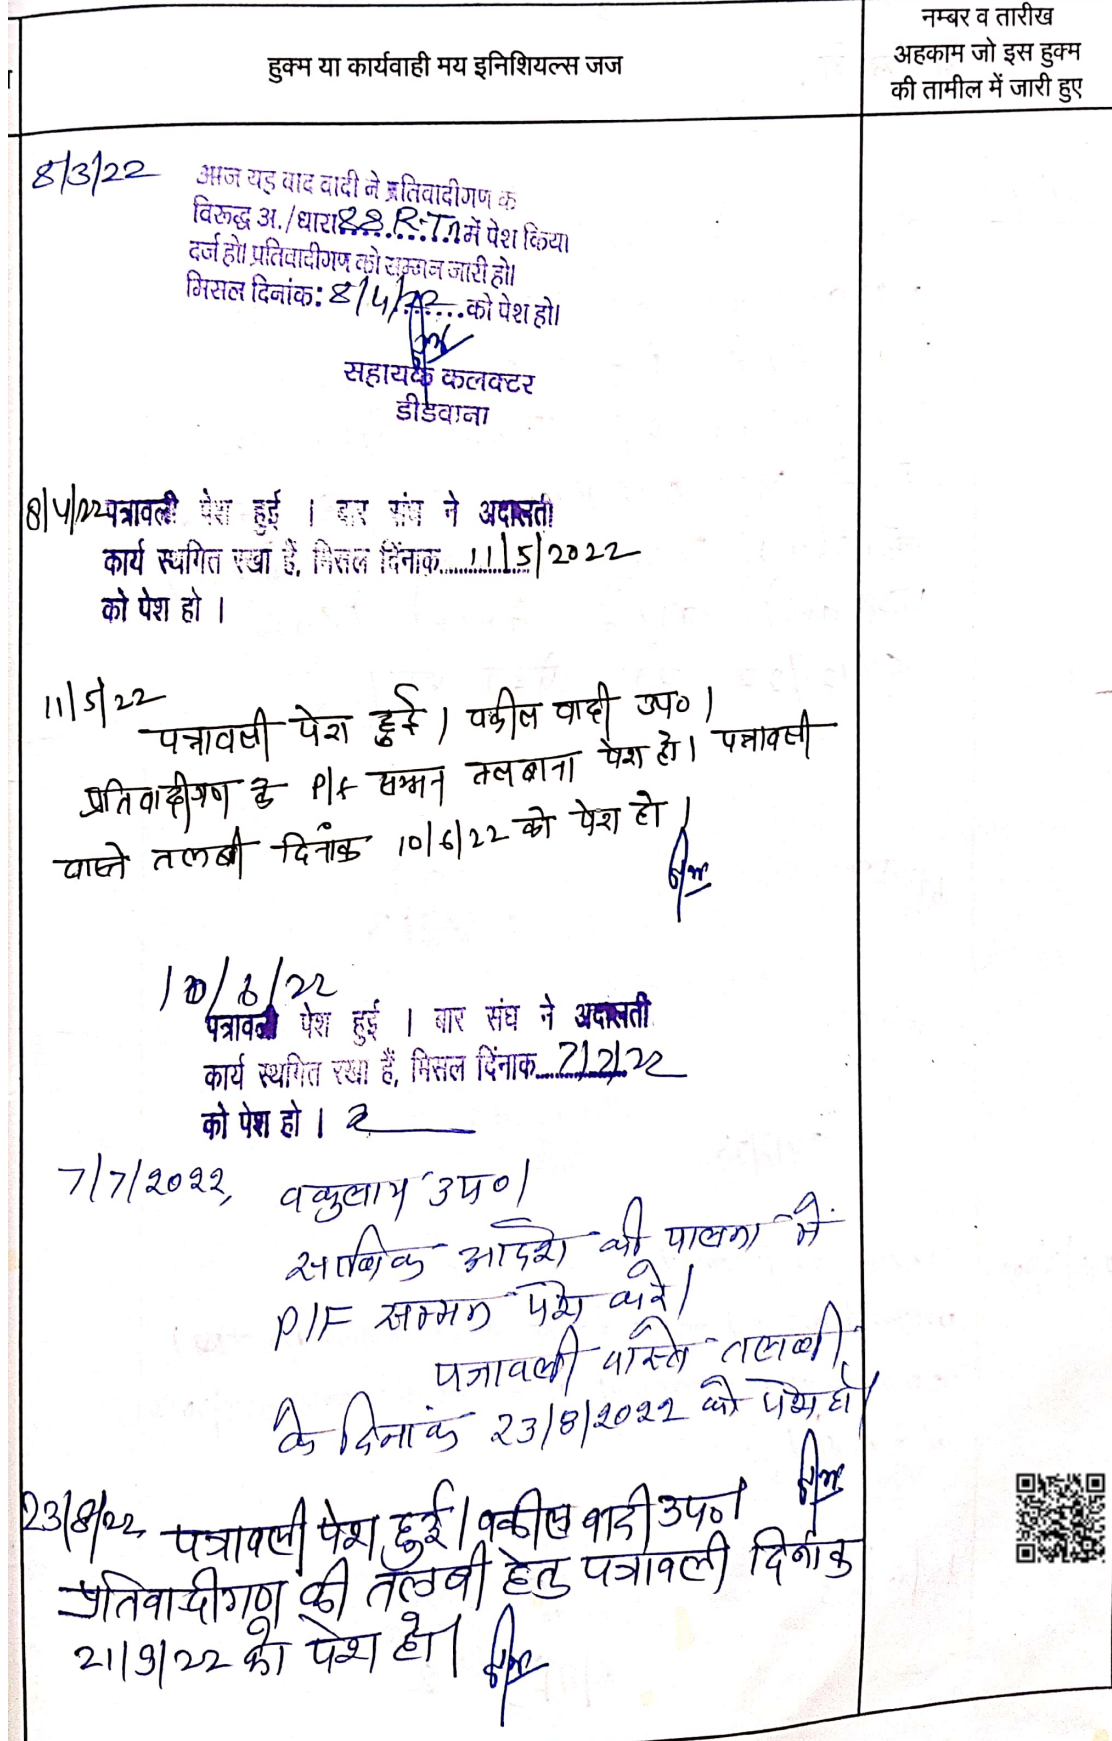 हुक्म या कार्यवाही मय इनिशियल्स जज
नम्बर व तारीख
अहकाम जो इस हुक्म
की तामील में जारी हुए
8/3/22
आज यह वाद वादी ने प्रतिवादीगण क
विरूद्ध अ./धारा 88 R.T.A में पेश किया
दर्ज हो। प्रतिवादीगण को सम्मन जारी हो।
मिसल दिनांक: 8/4/22 को पेश हो।
सहायक कलक्टर
डीडवाना
8/4/22 पत्रावली पेश हुई । बार संघ ने अदालती
कार्य स्थगित रखा हैं, मिसल दिंनाक 11/5/2022
को पेश हो ।
11/5/22
पत्रावली पेश हुई। वकील वादी उप०।
प्रतिवादीगण के P/F सम्मन तलबाना पेश हो। पत्रावली
वास्ते तलबी दिनांक 10/6/22 को पेश हो।
10/6/22
पत्रावली पेश हुई । बार संघ ने अदालती
कार्य स्थगित रखा हैं, मिसल दिंनाक 7/7/22
को पेश हो ।
7/7/2022, वकुलाय उप०।
साबिक आदेश की पालना में
P/F सम्मन पेश करे।
पत्रावली वास्ते तलबी
के दिनांक 23/8/2022 को पेश हो।
23/8/22 पत्रावली पेश हुई। वकील वादी उप०।
प्रतिवादीगण की तलबी हेतु पत्रावली दिनांक
21/9/22 को पेश हो।